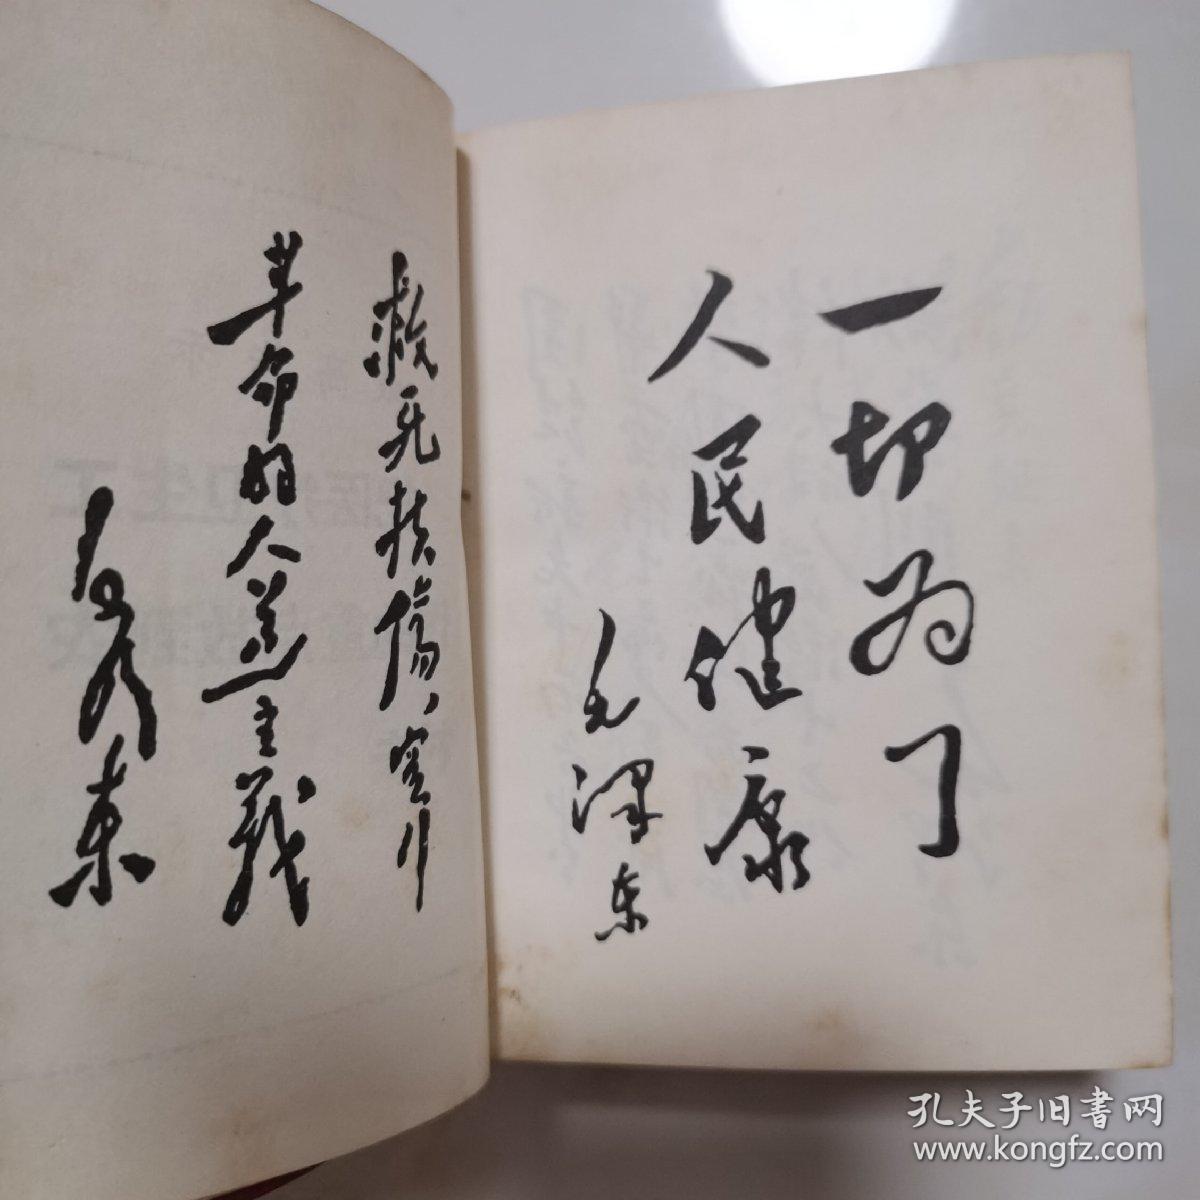 一切为了
人民健康
毛泽东
救死扶傷、实行
革命的人道主義
毛泽东
孔夫子旧書网
www.kongfz.com